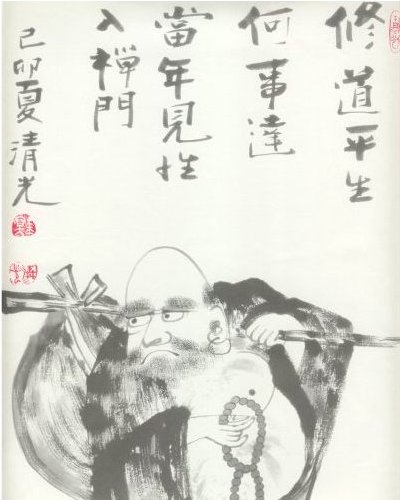 修道平生
何事達
當年見性
入禪門
己卯夏清光